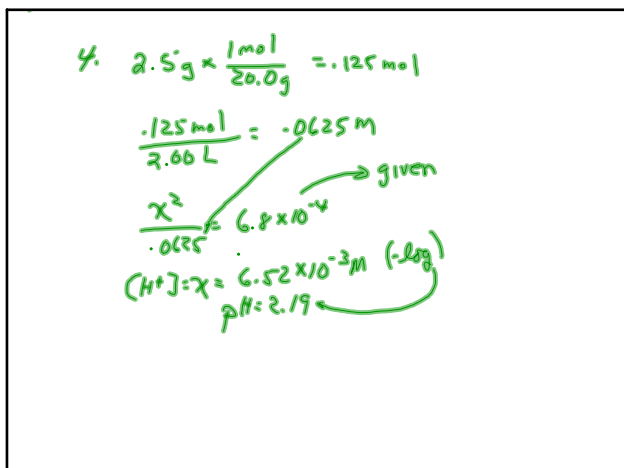 4. 2.5g × 1mol/20.0g = .125mol
.125mol/2.00L = .0625M
x²/.0625 = 6.8×10⁻⁴ → given
[H+]=x= 6.52×10⁻³M (-log)
pH=2.19